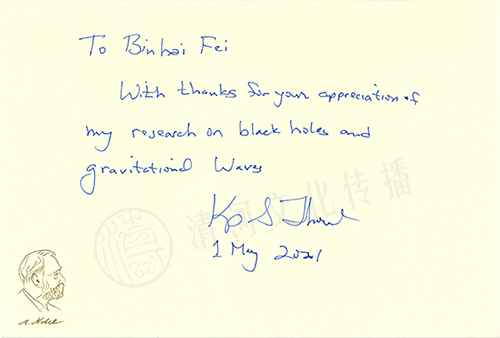 To Binhai Fei
With thanks for your appreciation of
my research on black holes and
gravitational Waves
Kip S Thorne
1 May 2021
清柯文化传播
A. Nobel